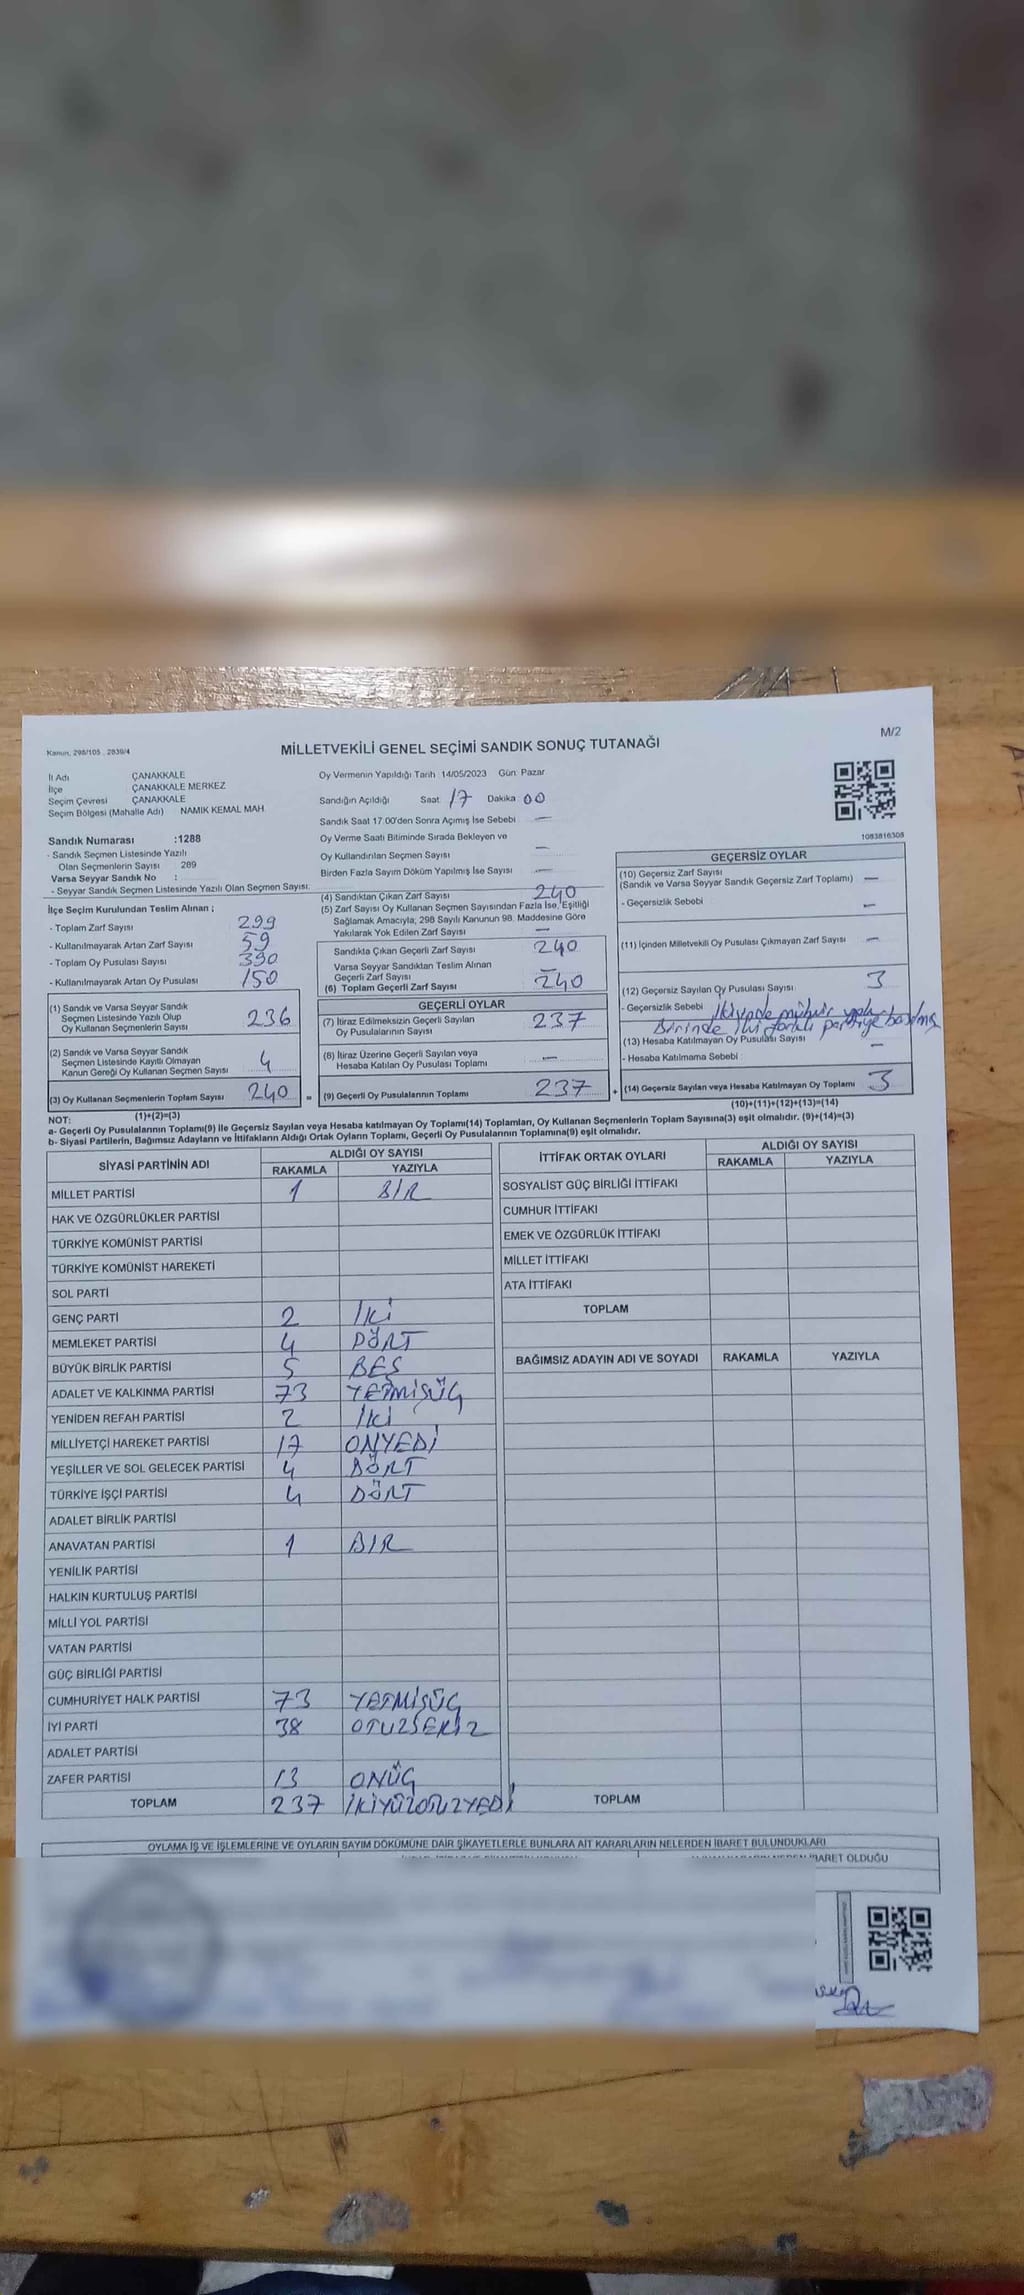 M/2
Kanun, 298/105 . 2839/4
MİLLETVEKİLİ GENEL SEÇİMİ SANDIK SONUÇ TUTANAĞI
İl Adı ÇANAKKALE
İlçe ÇANAKKALE MERKEZ
Seçim Çevresi ÇANAKKALE
Seçim Bölgesi (Mahalle Adı) NAMIK KEMAL MAH
Sandık Numarası :1288
- Sandık Seçmen Listesinde Yazılı
Olan Seçmenlerin Sayısı : 289
Varsa Seyyar Sandık No :
- Seyyar Sandık Seçmen Listesinde Yazılı Olan Seçmen Sayısı:
İlçe Seçim Kurulundan Teslim Alınan ;
- Toplam Zarf Sayısı 299
- Kullanılmayarak Artan Zarf Sayısı 59
- Toplam Oy Pusulası Sayısı 390
- Kullanılmayarak Artan Oy Pusulası 150
(1) Sandık ve Varsa Seyyar Sandık
Seçmen Listesinde Yazılı Olup
Oy Kullanan Seçmenlerin Sayısı 236
(2) Sandık ve Varsa Seyyar Sandık
Seçmen Listesinde Kayıtlı Olmayan
Kanun Gereği Oy Kullanan Seçmen Sayısı 4
(3) Oy Kullanan Seçmenlerin Toplam Sayısı 240 =
(1)+(2)=(3)
Oy Vermenin Yapıldığı Tarih 14/05/2023 Gün: Pazar
Sandığın Açıldığı Saat 17 Dakika 00
Sandık Saat 17.00'den Sonra Açımış İse Sebebi —
Oy Verme Saati Bitiminde Sırada Bekleyen ve
Oy Kullandırılan Seçmen Sayısı —
Birden Fazla Sayım Döküm Yapılmış İse Sayısı —
(4) Sandıktan Çıkan Zarf Sayısı 240
(5) Zarf Sayısı Oy Kullanan Seçmen Sayısından Fazla İse, Eşitliği
Sağlamak Amacıyla; 298 Sayılı Kanunun 98. Maddesine Göre
Yakılarak Yok Edilen Zarf Sayısı —
Sandıkta Çıkan Geçerli Zarf Sayısı 240
Varsa Seyyar Sandıktan Teslim Alınan
Geçerli Zarf Sayısı —
(6) Toplam Geçerli Zarf Sayısı 240
GEÇERLİ OYLAR
(7) İtiraz Edilmeksizin Geçerli Sayılan
Oy Pusulalarının Sayısı 237
(8) İtiraz Üzerine Geçerli Sayılan veya
Hesaba Katılan Oy Pusulası Toplamı —
(9) Geçerli Oy Pusulalarının Toplamı 237 +
1083816308
GEÇERSİZ OYLAR
(10) Geçersiz Zarf Sayısı
(Sandık ve Varsa Seyyar Sandık Geçersiz Zarf Toplamı) —
- Geçersizlik Sebebi —
(11) İçinden Milletvekili Oy Pusulası Çıkmayan Zarf Sayısı —
(12) Geçersiz Sayılan Oy Pusulası Sayısı 3
- Geçersizlik Sebebi İkisinde mühür yok
Birinde iki farklı partiye basılmış
(13) Hesaba Katılmayan Oy Pusulası Sayısı —
- Hesaba Katılmama Sebebi :
(14) Geçersiz Sayılan veya Hesaba Katılmayan Oy Toplamı 3
(10)+(11)+(12)+(13)=(14)
NOT:
a- Geçerli Oy Pusulalarının Toplamı(9) ile Geçersiz Sayılan veya Hesaba katılmayan Oy Toplamı(14) Toplamları, Oy Kullanan Seçmenlerin Toplam Sayısına(3) eşit olmalıdır. (9)+(14)=(3)
b- Siyasi Partilerin, Bağımsız Adayların ve İttifakların Aldığı Ortak Oyların Toplamı, Geçerli Oy Pusulalarının Toplamına(9) eşit olmalıdır.
SİYASİ PARTİNİN ADI ALDIĞI OY SAYISI
RAKAMLA YAZIYLA
MİLLET PARTİSİ 1 BİR
HAK VE ÖZGÜRLÜKLER PARTİSİ
TÜRKİYE KOMÜNİST PARTİSİ
TÜRKİYE KOMÜNİST HAREKETİ
SOL PARTİ
GENÇ PARTİ 2 İKİ
MEMLEKET PARTİSİ 4 DÖRT
BÜYÜK BİRLİK PARTİSİ 5 BEŞ
ADALET VE KALKINMA PARTİSİ 73 YETMİŞÜÇ
YENİDEN REFAH PARTİSİ 2 İKİ
MİLLİYETÇİ HAREKET PARTİSİ 17 ONYEDİ
YEŞİLLER VE SOL GELECEK PARTİSİ 4 DÖRT
TÜRKİYE İŞÇİ PARTİSİ 4 DÖRT
ADALET BİRLİK PARTİSİ
ANAVATAN PARTİSİ 1 BİR
YENİLİK PARTİSİ
HALKIN KURTULUŞ PARTİSİ
MİLLİ YOL PARTİSİ
VATAN PARTİSİ
GÜÇ BİRLİĞİ PARTİSİ
CUMHURİYET HALK PARTİSİ 73 YETMİŞÜÇ
İYİ PARTİ 38 OTUZSEKİZ
ADALET PARTİSİ
ZAFER PARTİSİ 13 ONÜÇ
TOPLAM 237 İKİYÜZOTUZYEDİ
İTTİFAK ORTAK OYLARI ALDIĞI OY SAYISI
RAKAMLA YAZIYLA
SOSYALİST GÜÇ BİRLİĞİ İTTİFAKI
CUMHUR İTTİFAKI
EMEK VE ÖZGÜRLÜK İTTİFAKI
MİLLET İTTİFAKI
ATA İTTİFAKI
TOPLAM
BAĞIMSIZ ADAYIN ADI VE SOYADI RAKAMLA YAZIYLA
TOPLAM
OYLAMA İŞ VE İŞLEMLERİNE VE OYLARIN SAYIM DÖKÜMÜNE DAİR ŞİKAYETLERLE BUNLARA AİT KARARLARIN NELERDEN İBARET BULUNDUKLARI
İBARET OLDUĞU